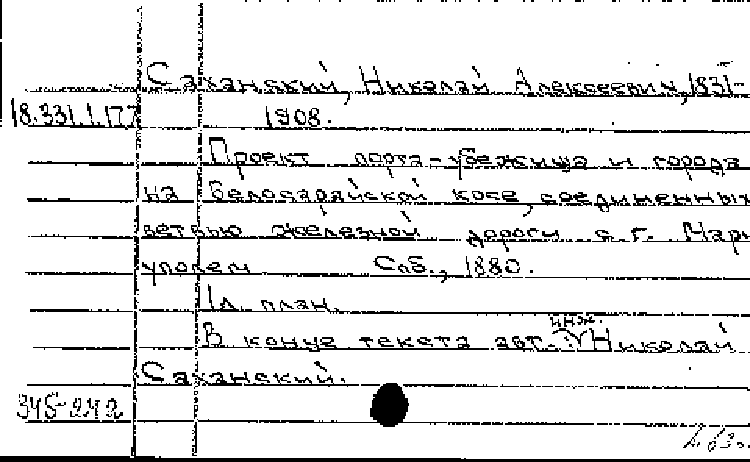 Саханский, Николай Алексеевич, 1831-
18.331.1.177
1908.
Проект порта-убежища и города
на Белосарайской косе, соединенных
ветвью железной дороги с г. Мари-
уполем Спб., 1880.
1л. план.
В конце текста авт.: инж. Николай
Саханский.
345-242